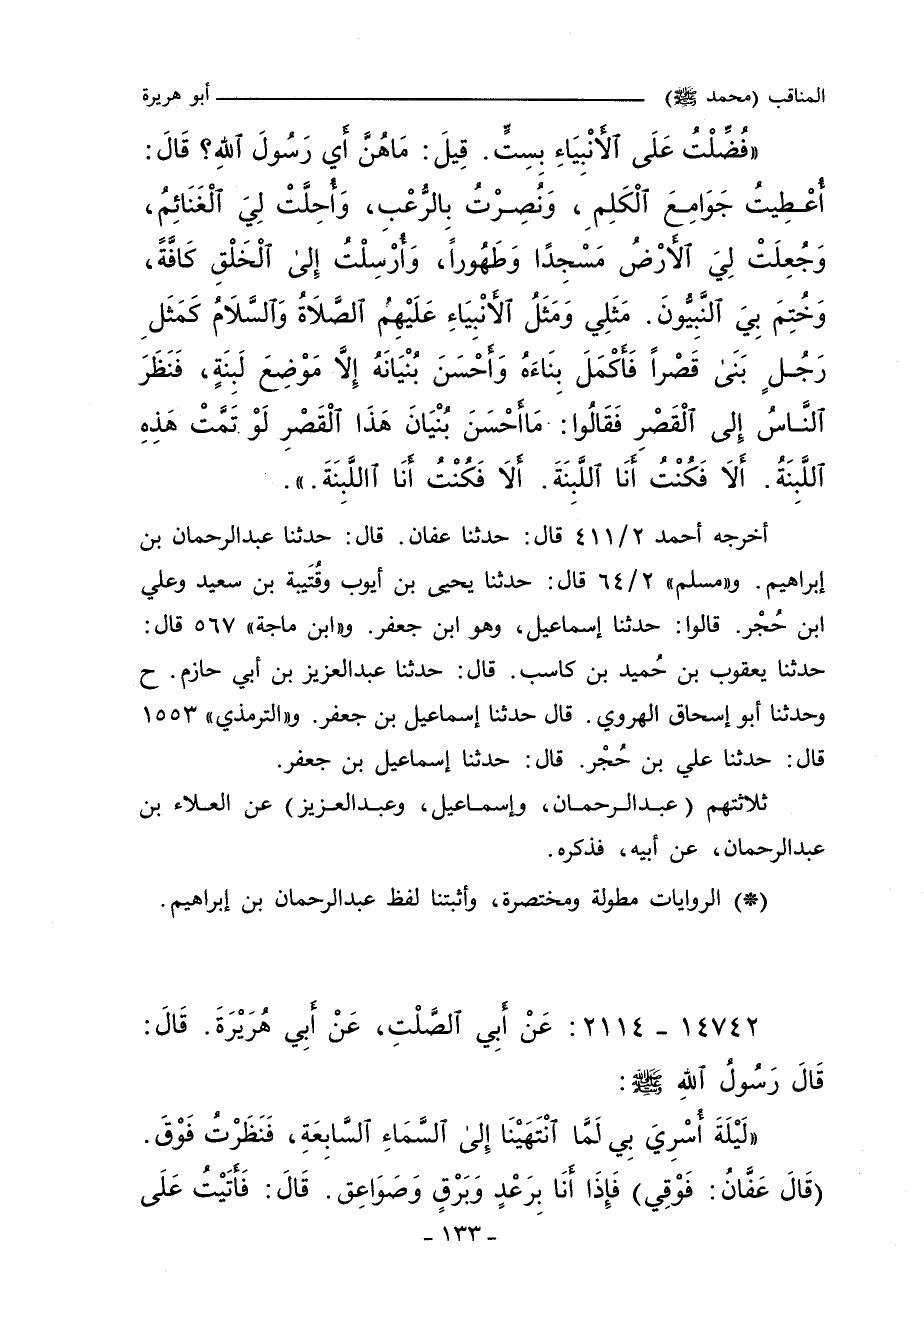 المناقب (محمد ﷺ) ــــــــــــــــــــ أبو هريرة
«فُضِّلْتُ عَلَى ٱلْأَنْبِيَاءِ بِسِتٍّ. قِيلَ: مَاهُنَّ أَي رَسُولَ ٱللهِ؟ قَالَ:
أُعْطِيتُ جَوَامِعَ ٱلْكَلِمِ، وَنُصِرْتُ بِالرُّعْبِ، وَأُحِلَّتْ لِيَ ٱلْغَنَائِمُ،
وَجُعِلَتْ لِيَ ٱلْأَرْضُ مَسْجِدًا وَطَهُوراً، وَأُرْسِلْتُ إِلىٰ ٱلْخَلْقِ كَافَّةً،
وَخُتِمَ بِيَ ٱلنَّبِيُّونَ. مَثَلِي وَمَثَلُ ٱلْأَنْبِيَاءِ عَلَيْهِمُ ٱلصَّلَاةُ وَٱلسَّلَامُ كَمَثَلِ
رَجُلٍ بَنَىٰ قَصْراً فَأَكْمَلَ بِنَاءَهُ وَأَحْسَنَ بُنْيَانَهُ إِلَّا مَوْضِعَ لَبِنَةٍ، فَنَظَرَ
ٱلنَّاسُ إِلى ٱلْقَصْرِ فَقَالُوا: مَاأَحْسَنَ بُنْيَانَ هَذَا ٱلْقَصْرِ لَوْ تَمَّتْ هَذِهِ
ٱللَّبِنَةُ. أَلَا فَكُنْتُ أَنَا ٱللَّبِنَةَ. أَلَا فَكُنْتُ أَنَا االلَّبِنَةَ.».
أخرجه أحمد ٤١١/٢ قال: حدثنا عفان. قال: حدثنا عبدالرحمان بن
إبراهيم. و«مسلم» ٦٤/٢ قال: حدثنا يحيى بن أيوب وقُتَيبة بن سعيد وعلي
ابن حُجْر. قالوا: حدثنا إسماعيل، وهو ابن جعفر. و«ابن ماجة» ٥٦٧ قال:
حدثنا يعقوب بن حُميد بن كاسب. قال: حدثنا عبدالعزيز بن أبي حازم. ح
وحدثنا أبو إسحاق الهروي. قال حدثنا إسماعيل بن جعفر. و«الترمذي» ١٥٥٣
قال: حدثنا علي بن حُجْر. قال: حدثنا إسماعيل بن جعفر.
ثلاثتهم (عبدالرحمان، وإسماعيل، وعبدالعزيز) عن العلاء بن
عبدالرحمان، عن أبيه، فذكره.
(*) الروايات مطولة ومختصرة، وأثبتنا لفظ عبدالرحمان بن إبراهيم.
١٤٧٤٢ – ٢١١٤: عَنْ أَبِي ٱلصَّلْتِ، عَنْ أَبِي هُرَيْرَةَ. قَالَ:
قَالَ رَسُولُ ٱللهِ ﷺ:
«لَيْلَةَ أُسْرِيَ بِي لَمَّا ٱنْتَهَيْنَا إِلىٰ ٱلسَّمَاءِ ٱلسَّابِعَةِ، فَنَظَرْتُ فَوْقَ.
(قَالَ عَفَّانُ: فَوْقِي) فَإِذَا أَنَا بِرَعْدٍ وَبَرْقٍ وَصَوَاعِقَ. قَالَ: فَأَتَيْتُ عَلَى
- ١٣٣ -